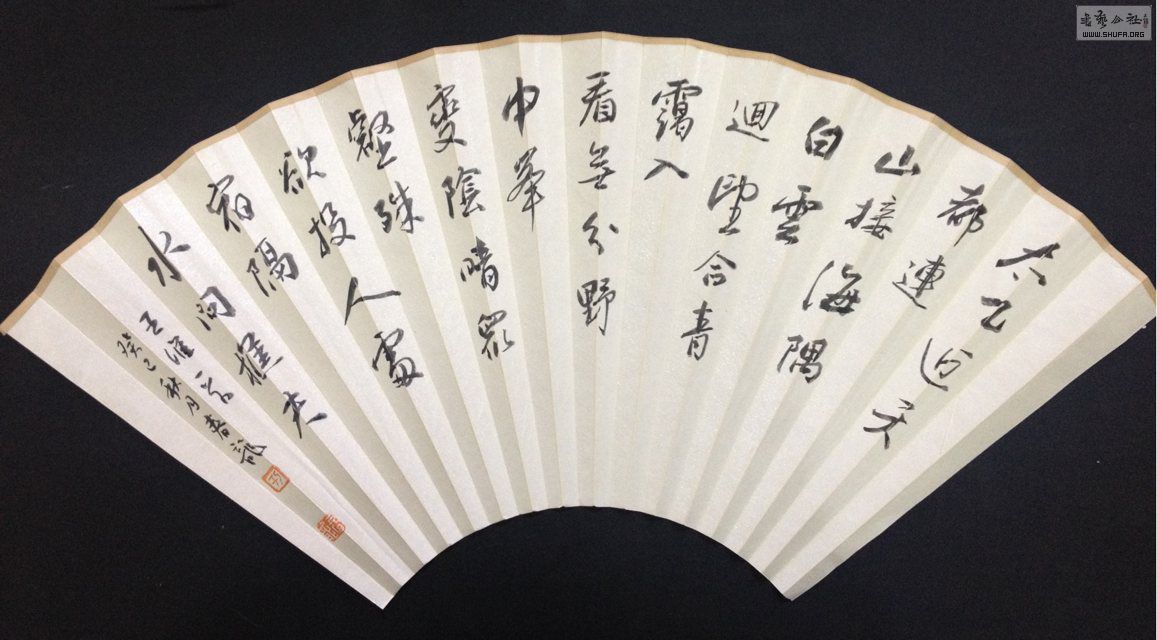 太乙近天
都連
山接海隅
白雲
迴望合青
靄入
看無分野
中峯
變陰晴眾
壑殊
欲投人處
宿隔
水問樵夫
王維詩
癸巳秋月春龍
書藝公社
WWW.SHUFA.ORG